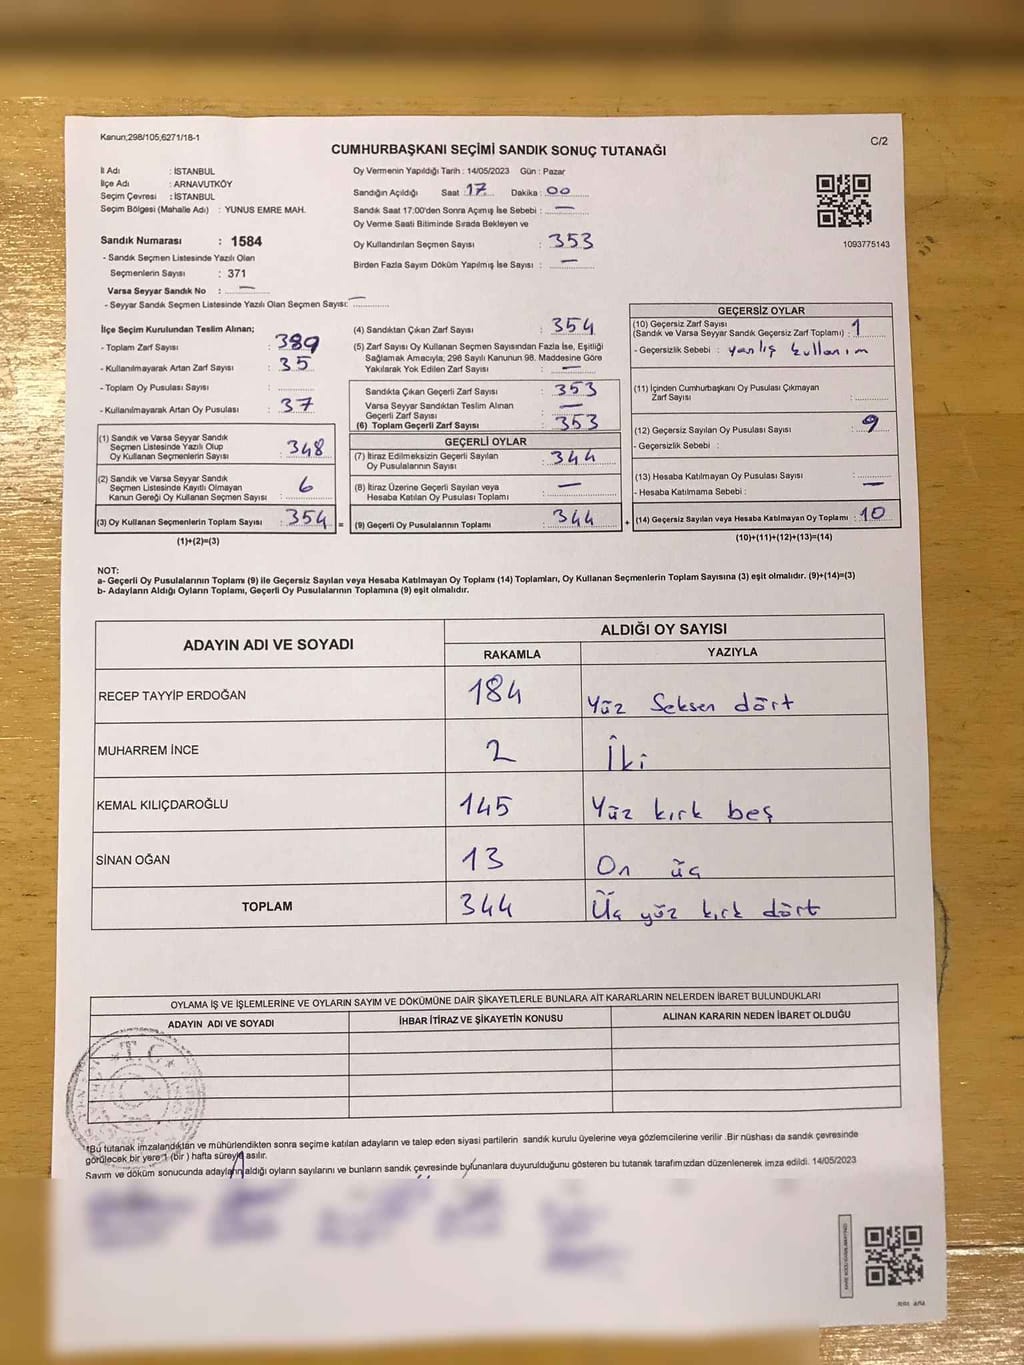 Kanun;298/105,6271/18-1
C/2
CUMHURBAŞKANI SEÇİMİ SANDIK SONUÇ TUTANAĞI
İl Adı : İSTANBUL
İlçe Adı : ARNAVUTKÖY
Seçim Çevresi : İSTANBUL
Seçim Bölgesi (Mahalle Adı) : YUNUS EMRE MAH.
Sandık Numarası : 1584
- Sandık Seçmen Listesinde Yazılı Olan
Seçmenlerin Sayısı : 371
Varsa Seyyar Sandık No : —
- Seyyar Sandık Seçmen Listesinde Yazılı Olan Seçmen Sayısı: —
Oy Vermenin Yapıldığı Tarih : 14/05/2023 Gün : Pazar
Sandığın Açıldığı Saat : 17 Dakika : 00
Sandık Saat 17:00'den Sonra Açımış İse Sebebi : —
Oy Verme Saati Bitiminde Sırada Bekleyen ve
Oy Kullandırılan Seçmen Sayısı : 353
Birden Fazla Sayım Döküm Yapılmış İse Sayısı : —
1093775143
İlçe Seçim Kurulundan Teslim Alınan;
- Toplam Zarf Sayısı : 389
- Kullanılmayarak Artan Zarf Sayısı : 35
- Toplam Oy Pusulası Sayısı :
- Kullanılmayarak Artan Oy Pusulası : 37
(1) Sandık ve Varsa Seyyar Sandık
Seçmen Listesinde Yazılı Olup
Oy Kullanan Seçmenlerin Sayısı : 348
(2) Sandık ve Varsa Seyyar Sandık
Seçmen Listesinde Kayıtlı Olmayan
Kanun Gereği Oy Kullanan Seçmen Sayısı : 6
(3) Oy Kullanan Seçmenlerin Toplam Sayısı : 354 =
(1)+(2)=(3)
(4) Sandıktan Çıkan Zarf Sayısı : 354
(5) Zarf Sayısı Oy Kullanan Seçmen Sayısından Fazla İse, Eşitliği
Sağlamak Amacıyla; 298 Sayılı Kanunun 98. Maddesine Göre
Yakılarak Yok Edilen Zarf Sayısı : —
Sandıkta Çıkan Geçerli Zarf Sayısı : 353
Varsa Seyyar Sandıktan Teslim Alınan
Geçerli Zarf Sayısı : —
(6) Toplam Geçerli Zarf Sayısı : 353
GEÇERLİ OYLAR
(7) İtiraz Edilmeksizin Geçerli Sayılan
Oy Pusulalarının Sayısı : 344
(8) İtiraz Üzerine Geçerli Sayılan veya
Hesaba Katılan Oy Pusulası Toplamı : —
(9) Geçerli Oy Pusulalarının Toplamı : 344 +
GEÇERSİZ OYLAR
(10) Geçersiz Zarf Sayısı
(Sandık ve Varsa Seyyar Sandık Geçersiz Zarf Toplamı) : 1
- Geçersizlik Sebebi : yanlış kullanım
(11) İçinden Cumhurbaşkanı Oy Pusulası Çıkmayan
Zarf Sayısı :
(12) Geçersiz Sayılan Oy Pusulası Sayısı : 9
- Geçersizlik Sebebi :
(13) Hesaba Katılmayan Oy Pusulası Sayısı : —
- Hesaba Katılmama Sebebi :
(14) Geçersiz Sayılan veya Hesaba Katılmayan Oy Toplamı : 10
(10)+(11)+(12)+(13)=(14)
NOT:
a- Geçerli Oy Pusulalarının Toplamı (9) ile Geçersiz Sayılan veya Hesaba Katılmayan Oy Toplamı (14) Toplamları, Oy Kullanan Seçmenlerin Toplam Sayısına (3) eşit olmalıdır. (9)+(14)=(3)
b- Adayların Aldığı Oyların Toplamı, Geçerli Oy Pusulalarının Toplamına (9) eşit olmalıdır.
ADAYIN ADI VE SOYADI
ALDIĞI OY SAYISI
RAKAMLA YAZIYLA
RECEP TAYYİP ERDOĞAN 184 Yüz Seksen dört
MUHARREM İNCE 2 İki
KEMAL KILIÇDAROĞLU 145 Yüz kırk beş
SİNAN OĞAN 13 On üç
TOPLAM 344 Üç yüz kırk dört
OYLAMA İŞ VE İŞLEMLERİNE VE OYLARIN SAYIM VE DÖKÜMÜNE DAİR ŞİKAYETLERLE BUNLARA AİT KARARLARIN NELERDEN İBARET BULUNDUKLARI
ADAYIN ADI VE SOYADI İHBAR İTİRAZ VE ŞİKAYETİN KONUSU ALINAN KARARIN NEDEN İBARET OLDUĞU
T.C.
*Bu tutanak imzalandıktan ve mühürlendikten sonra seçime katılan adayların ve talep eden siyasi partilerin sandık kurulu üyelerine veya gözlemcilerine verilir .Bir nüshası da sandık çevresinde
görülecek bir yere 1 (bir ) hafta süreyle asılır.
Sayım ve döküm sonucunda adayların aldığı oyların sayılarını ve bunların sandık çevresinde bulunanlara duyurulduğunu gösteren bu tutanak tarafımızdan düzenlenerek imza edildi. 14/05/2023